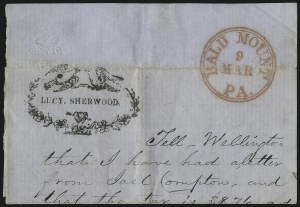 BALD MOUNT
9
MAR
PA.
LUCY. SHERWOOD.
Tell Wellington
that I have had a letter
from Compton, and
that the tax is